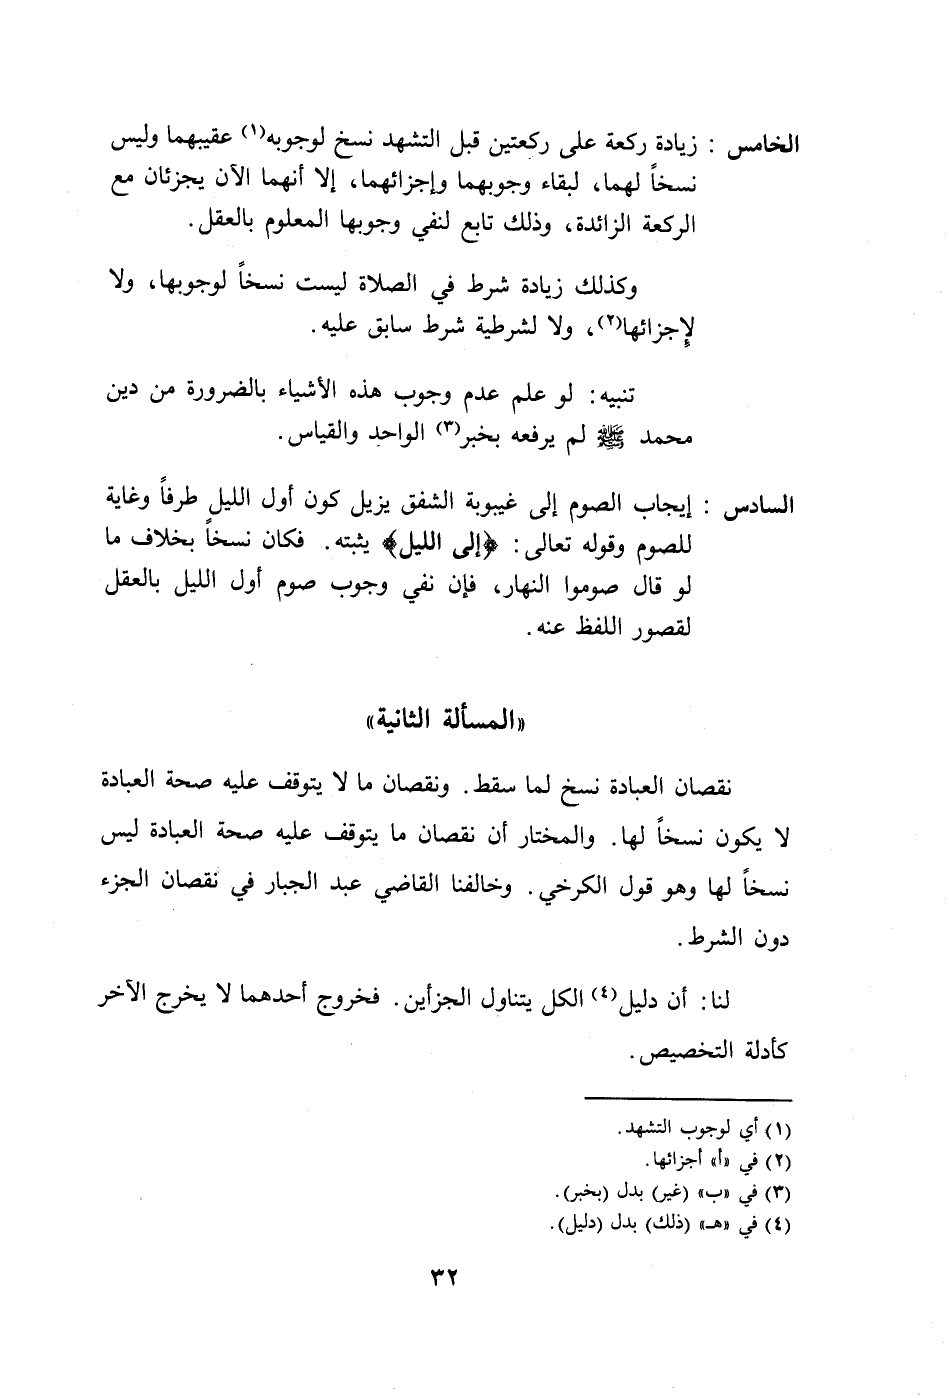 الخامس : زيادة ركعة على ركعتين قبل التشهد نسخ لوجوبه(١) عقيبهما وليس
نسخاً لهما، لبقاء وجوبهما وإجزائهما، إلا أنهما الآن يجزئان مع
الركعة الزائدة، وذلك تابع لنفي وجوبها المعلوم بالعقل.
وكذلك زيادة شرط في الصلاة ليست نسخاً لوجوبها، ولا
لإجزائها(٢)، ولا لشرطية شرط سابق عليه.
تنبيه: لو علم عدم وجوب هذه الأشياء بالضرورة من دين
محمد ﷺ لم يرفعه بخبر(٣) الواحد والقياس.
السادس : إيجاب الصوم إلى غيبوبة الشفق يزيل كون أول الليل طرفاً وغاية
للصوم وقوله تعالى: ﴿إلى الليل﴾ يثبته. فكان نسخاً بخلاف ما
لو قال صوموا النهار، فإن نفي وجوب صوم أول الليل بالعقل
لقصور اللفظ عنه.
«المسألة الثانية»
نقصان العبادة نسخ لما سقط. ونقصان ما لا يتوقف عليه صحة العبادة
لا يكون نسخاً لها. والمختار أن نقصان ما يتوقف عليه صحة العبادة ليس
نسخاً لها وهو قول الكرخي. وخالفنا القاضي عبد الجبار في نقصان الجزء
دون الشرط.
لنا: أن دليل(٤) الكل يتناول الجزأين. فخروج أحدهما لا يخرج الآخر
كأدلة التخصيص.
(١) أي لوجوب التشهد.
(٢) في «أ» أجزائها.
(٣) في «ب» (غير) بدل (بخبر).
(٤) في «هـ» (ذلك) بدل (دليل).
٣٢